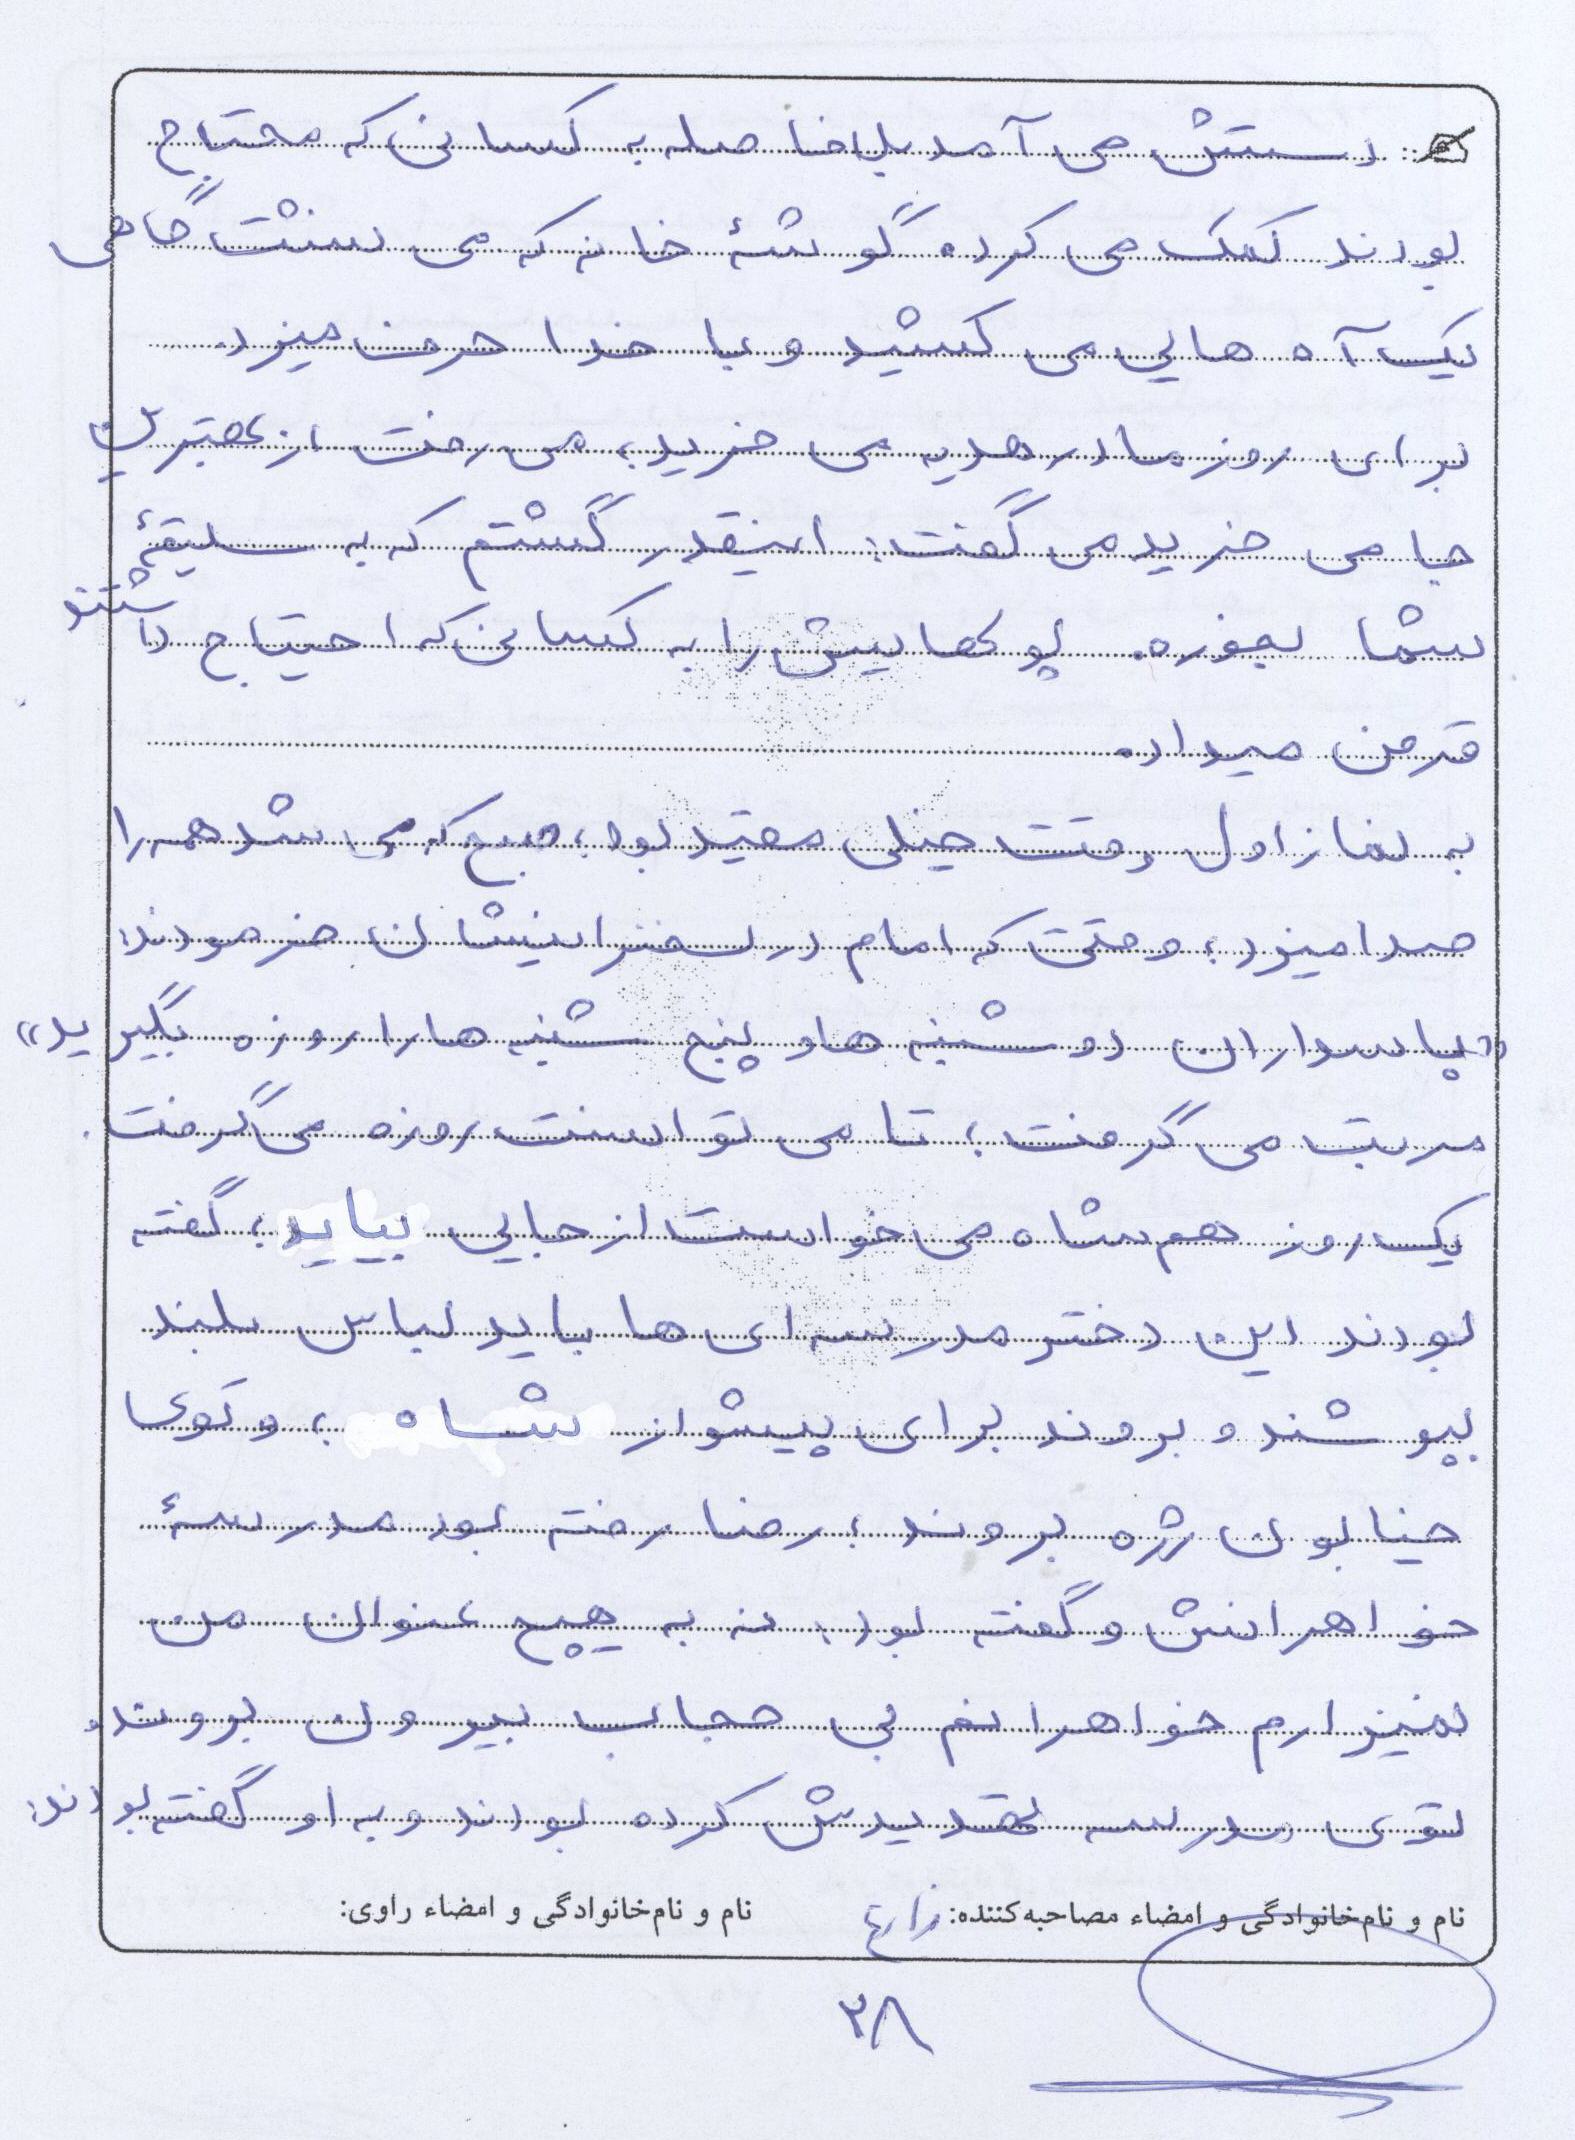 دستش می آمد بلافاصله به کسانی که محتاج
بودند کمک می کرد، گوشهٔ خانه که می نشست گاهی
یک آه هایی می کشید و با خدا حرف میزد.
برای روز مادر هدیه می خرید، می رفت از بهترین
جا می خرید می گفت: اینقدر گشتم که به سلیقهٔ
شما بخوره. پولهایش را به کسانی که احتیاج داشتند
قرض میداد.
به نماز اول وقت خیلی مقید بود، صبح که می شد همه را
صدا میزد، وقتی که امام در سخنرانیشان فرمودند:
«پاسداران دوشنبه ها و پنج شنبه ها را روزه بگیرید»
مرتب می گرفت، تا می توانست روزه می گرفت.
یک روز هم شاه می خواست از جایی بیاید، گفته
بودند این دختر مدرسه ای ها باید لباس بلند
بپوشند و بروند برای پیشواز شاه، و توی
خیابون رژه بروند، رضا رفته بود مدرسهٔ
خواهرانش و گفته بود: نه به هیچ عنوان من
نمیزارم خواهرانم بی حجاب بیرون بروند.
توی مدرسه تهدیدش کرده بودند و به او گفته بودند:
نام و نام‌خانوادگی و امضاء مصاحبه‌کننده: زارع نام و نام‌خانوادگی و امضاء راوی:
۲۸